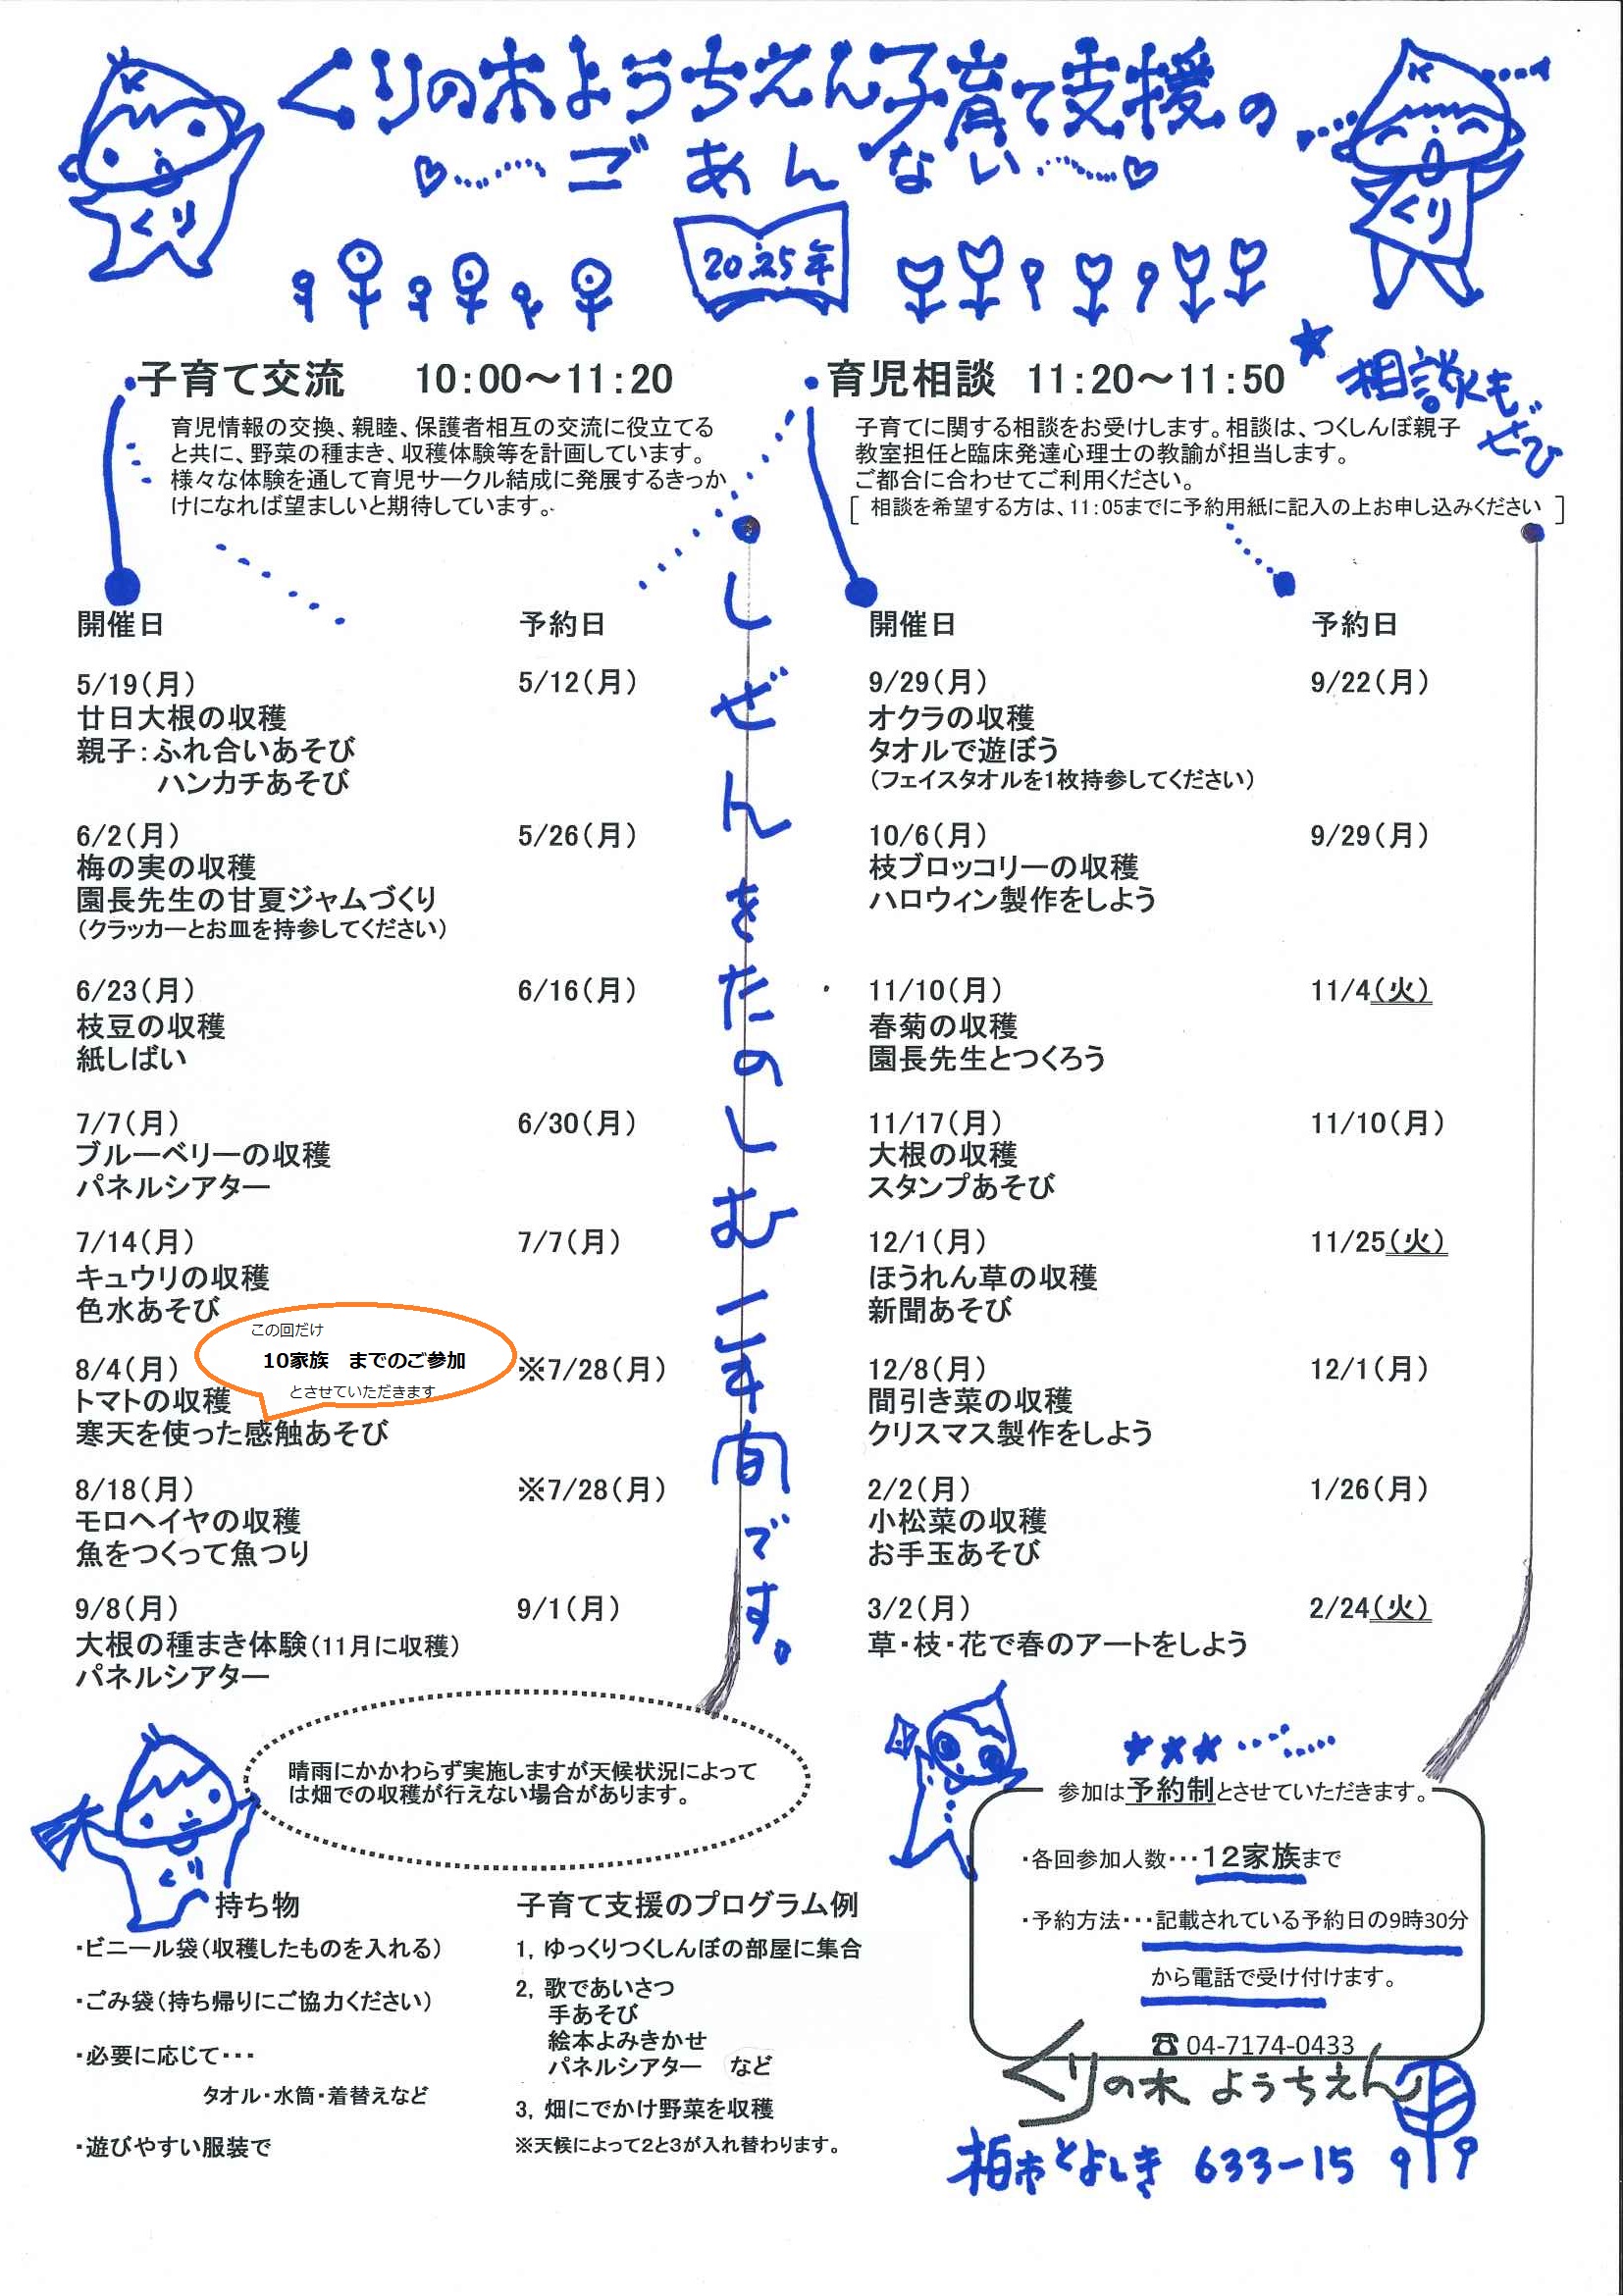 くりの木ようちえん子育て支援の
ごあんない
2025年
くり
くり
子育て交流　10:00～11:20
育児情報の交換、親睦、保護者相互の交流に役立てる
と共に、野菜の種まき、収穫体験等を計画しています。
様々な体験を通して育児サークル結成に発展するきっか
けになれば望ましいと期待しています。
育児相談　11:20～11:50
相談も
ぜひ
子育てに関する相談をお受けします。相談は、つくしんぼ親子
教室担任と臨床発達心理士の教諭が担当します。
ご都合に合わせてご利用ください。
[ 相談を希望する方は、11:05までに予約用紙に記入の上お申し込みください ]
開催日　予約日
5/19(月)　5/12(月)
廿日大根の収穫
親子：ふれ合いあそび
ハンカチあそび
6/2(月)　5/26(月)
梅の実の収穫
園長先生の甘夏ジャムづくり
(クラッカーとお皿を持参してください)
6/23(月)　6/16(月)
枝豆の収穫
紙しばい
7/7(月)　6/30(月)
ブルーベリーの収穫
パネルシアター
7/14(月)　7/7(月)
キュウリの収穫
色水あそび
この回だけ
10家族　までのご参加
とさせていただきます
8/4(月)　※7/28(月)
トマトの収穫
寒天を使った感触あそび
8/18(月)　※7/28(月)
モロヘイヤの収穫
魚をつくって魚つり
9/8(月)　9/1(月)
大根の種まき体験(11月に収穫)
パネルシアター
しぜんをたのしむ一年間です。
開催日　予約日
9/29(月)　9/22(月)
オクラの収穫
タオルで遊ぼう
(フェイスタオルを1枚持参してください)
10/6(月)　9/29(月)
枝ブロッコリーの収穫
ハロウィン製作をしよう
11/10(月)　11/4(火)
春菊の収穫
園長先生とつくろう
11/17(月)　11/10(月)
大根の収穫
スタンプあそび
12/1(月)　11/25(火)
ほうれん草の収穫
新聞あそび
12/8(月)　12/1(月)
間引き菜の収穫
クリスマス製作をしよう
2/2(月)　1/26(月)
小松菜の収穫
お手玉あそび
3/2(月)　2/24(火)
草・枝・花で春のアートをしよう
晴雨にかかわらず実施しますが天候状況によって
は畑での収穫が行えない場合があります。
くり
持ち物
・ビニール袋(収穫したものを入れる)
・ごみ袋(持ち帰りにご協力ください)
・必要に応じて・・・
タオル・水筒・着替えなど
・遊びやすい服装で
子育て支援のプログラム例
1, ゆっくりつくしんぼの部屋に集合
2, 歌であいさつ
手あそび
絵本よみきかせ
パネルシアター　など
3, 畑にでかけ野菜を収穫
※天候によって2と3が入れ替わります。
参加は予約制とさせていただきます。
・各回参加人数・・・12家族まで
・予約方法・・・記載されている予約日の9時30分
から電話で受け付けます。
☎ 04-7174-0433
くりの木 ようちえん
柏市とよしき 633-15